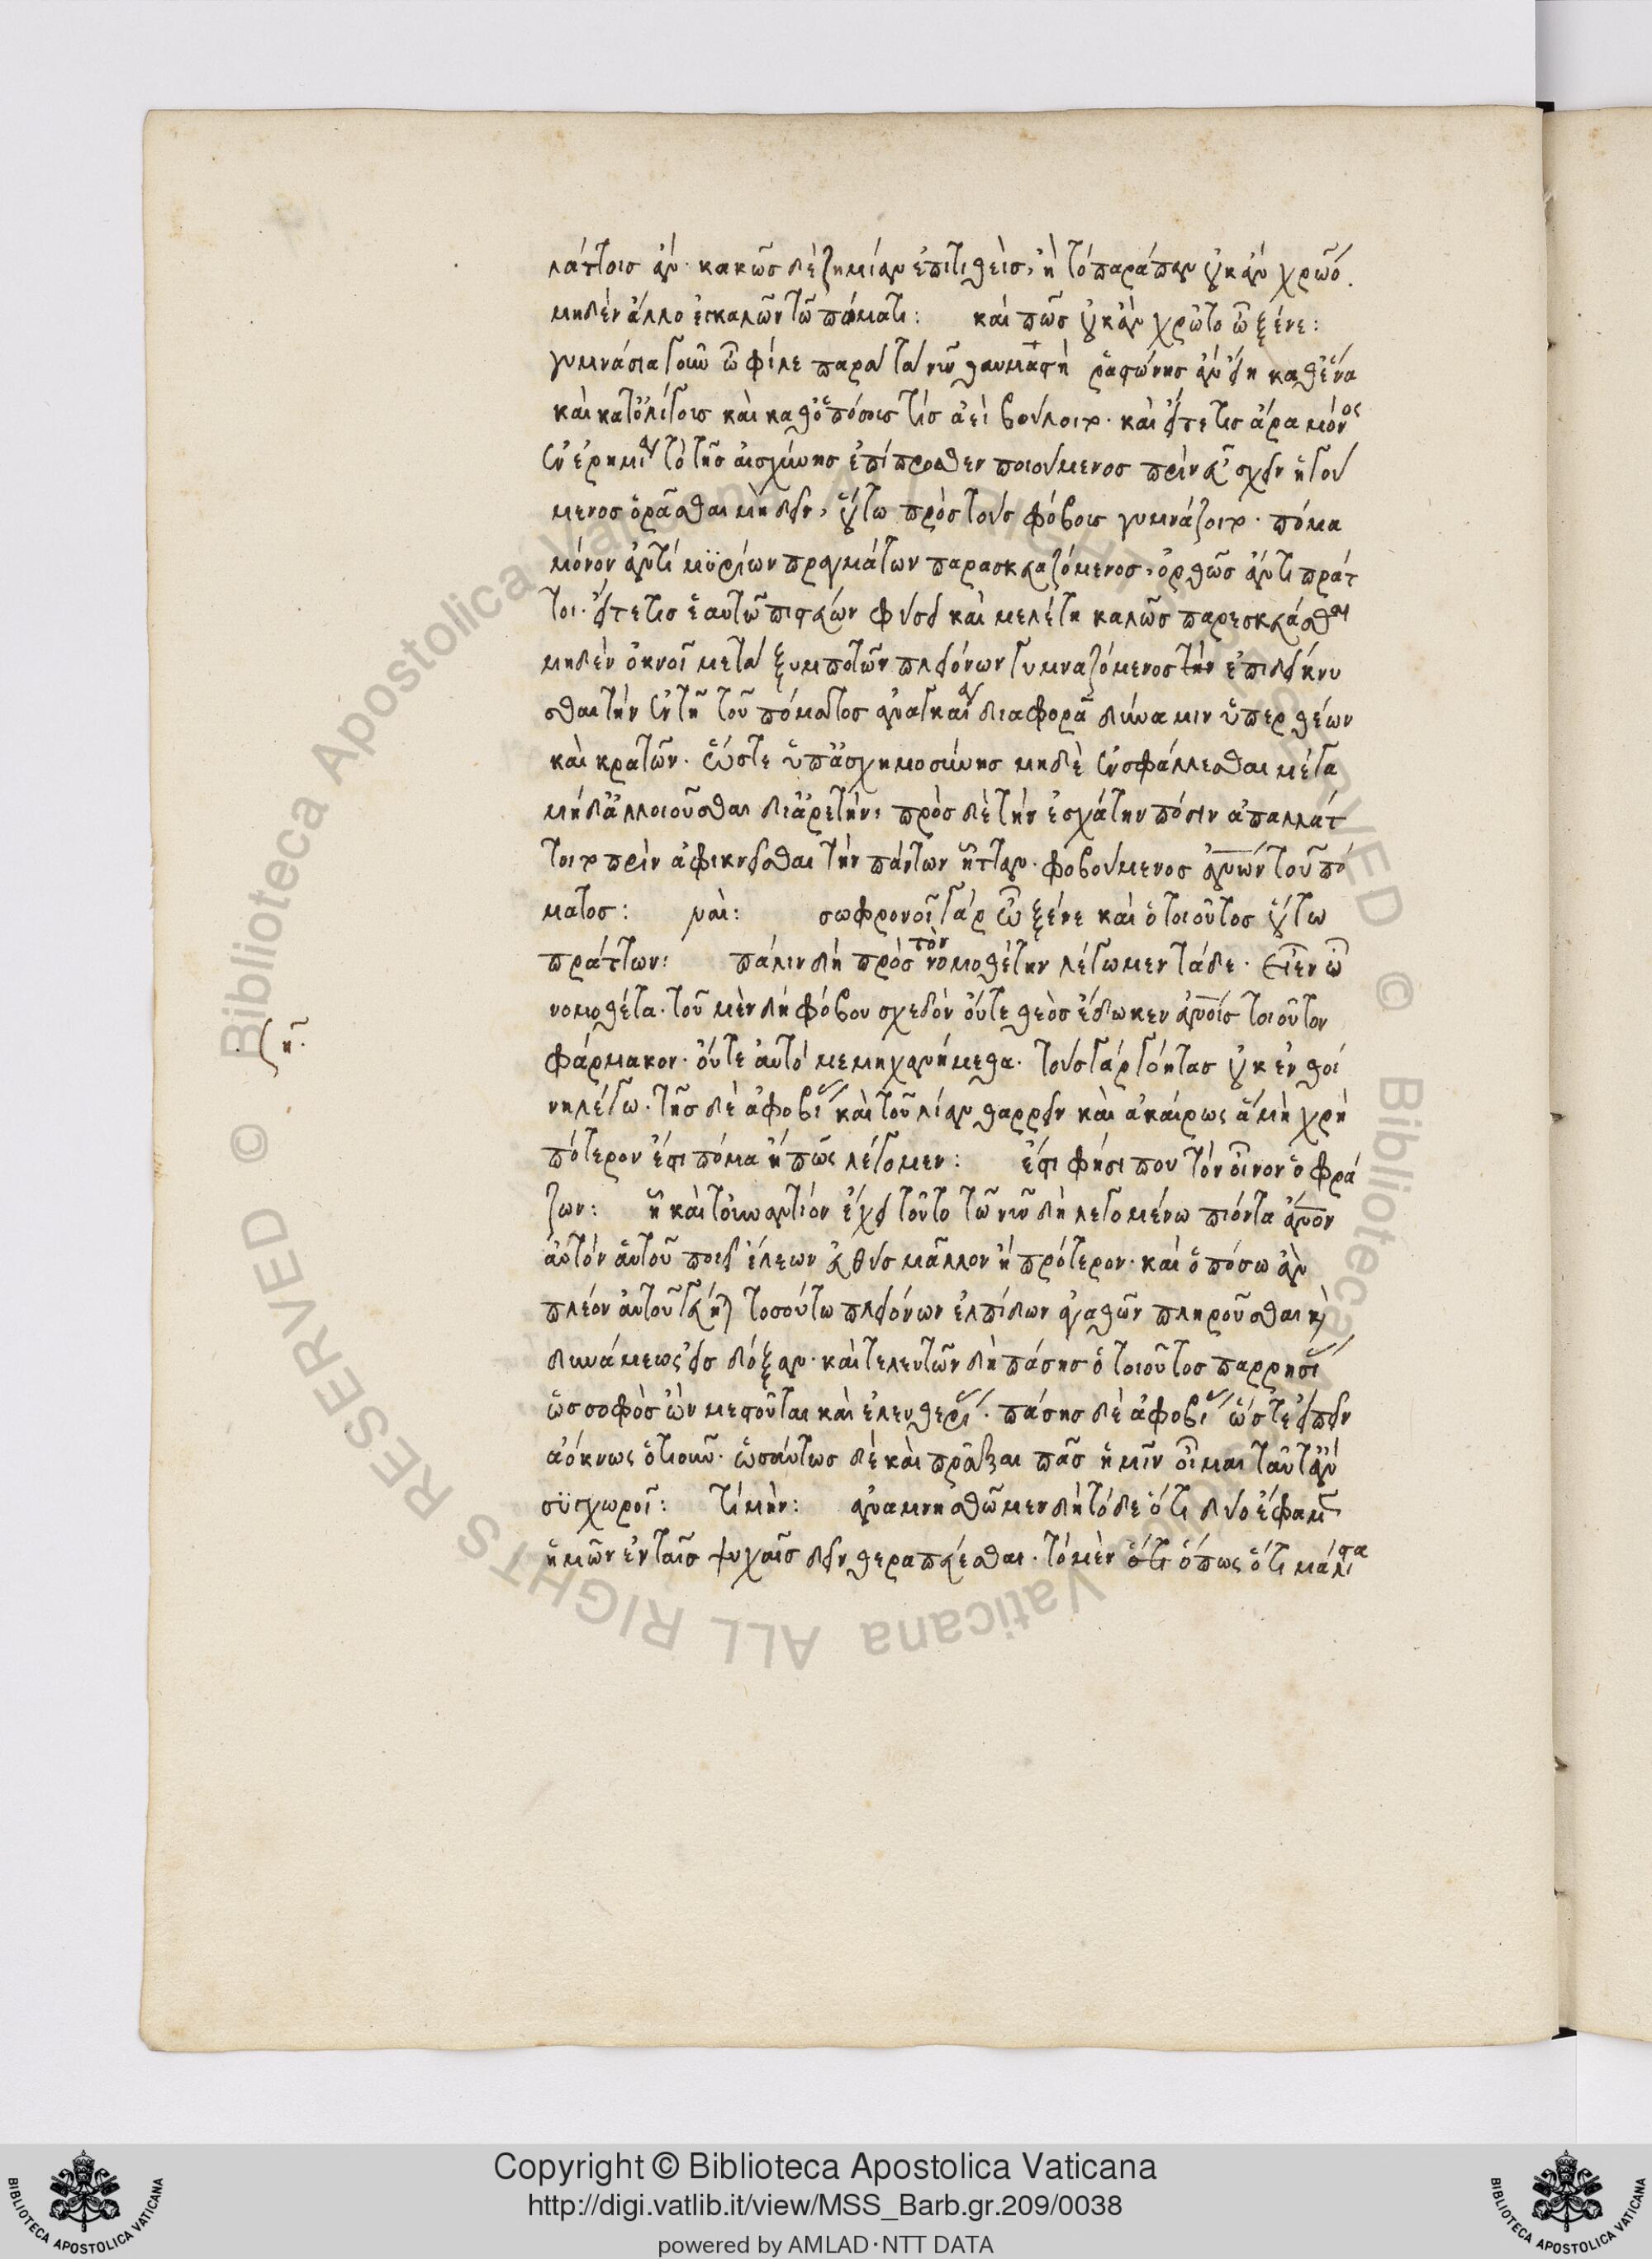 λάττοις ἄν· κακῶς δὲ ζημίαν ἐπιτιθεὶς, ἢ τὸ παράπαν οὐκ ἂν χρῷο.
μηδὲν ἄλλο ἐγκαλῶν τῶ πόματι: καὶ πῶς οὐκ ἂν χρῷτο ὦ ξένε:
γυμνάσια γοῦν ὦ φίλε παρὰ τὰ νῦν θαυμαστὴ ῥαστώνης ἂν εἴη καθ' ἕνα
καὶ κατ' ὀλίγους καὶ καθ' ὁπόσους τίς ἀεὶ βούλοιτο· καὶ εἴτε τις ἄρα μόνος
ἐν ἐρημίᾳ τὸ τῆς αἰσχύνης ἐπίπροσθεν ποιούμενος πρὶν εὖ σχεῖν ἡγού
μενος ὁρᾶσθαι μὴ δεῖν, οὕτω πρὸς τοὺς φόβους γυμνάζοιτο· πόμα
μόνον ἀντὶ μυρίων πραγμάτων παρασκευαζόμενος, ὀρθῶς ἄν τι πράτ
τοι· εἴτε τις ἑαυτῶ πιστεύων φύσει καὶ μελέτη καλῶς παρεσκευάσθαι
μηδὲν ὀκνοῖ μετὰ ξυμποτῶν πλειόνων γυμναζόμενος τὴν ἐπιδείκνυ
σθαι τὴν ἐν τῆ τοῦ πόματος ἀναγκαίᾳ διαφορᾶ δύναμιν ὑπερθέων
καὶ κρατῶν· ὥστε ὑπ' ἀσχημοσύνης μηδὲ ἓν σφάλλεσθαι μέγα
μήδ' ἀλλοιοῦσθαι δι' ἀρετὴν, πρὸς δὲ τὴν ἐσχάτην πόσιν ἀπαλλάτ
τοιτο πρὶν ἀφικνεῖσθαι τὴν πάντων ἧτταν φοβούμενος ἀνων τοῦ πό
ματος: ναὶ: σωφρονοῖ γὰρ ὦ ξένε καὶ ὁ τοιοῦτος οὕτω
πράττων: πάλιν δὴ πρὸς τὸν νομοθέτην λέγωμεν τάδε· εἶεν ὦ
νομοθέτα· τοῦ μὲν δὴ φόβου σχεδὸν οὔτε θεὸς ἔδωκεν ἀνοις τοιοῦτον
φάρμακον· οὔτε αὐτοὶ μεμηχανήμεθα· τοὺς γὰρ γόητας οὐκ ἐν θοί
νη λέγω· τῆς δὲ ἀφοβίας καὶ τοῦ λίαν θαρρεῖν καὶ ἀκαίρως ἃ μὴ χρὴ
πότερον ἔστι πόμα ἢ πῶς λέγομεν: ἔστι φήσει που τὸν οἶνον ὁ φρά
ζων: ἦ καὶ τοὐναντίον ἔχει τοῦτο τῶ νῦν δὴ λεγομένω πιόντα ἄνον
αὐτὸν αὑτοῦ ποιεῖ ἵλεων εὐθὺς μᾶλλον ἢ πρότερον· καὶ ὁπόσω ἂν
πλέον αὐτοῦ γεύηται τοσούτω πλειόνων ἐλπίδων ἀγαθῶν πληροῦσθαι καὶ
δυνάμεως εἰς δόξαν· καὶ τελευτῶν δὴ πάσης ὁ τοιοῦτος παρρησίας
ὡς σοφὸς ὢν μεστοῦται καὶ ἐλευθερίας· πάσης δὲ ἀφοβίας ὥστε εἰπεῖν
ἀόκνως ὁτιοῦν· ὡσαύτως δὲ καὶ πρᾶξαι πᾶς ἡμῖν οἶμαι ταῦτ' ἂν
συγχωροῖ: τί μήν: ἀναμνησθῶμεν δὴ τόδε ὅτι δύο ἔφαμεν
ἡμῶν ἐν ταῖς ψυχαῖς δεῖν θεραπεύεσθαι· τὸ μὲν ὅτι ὅπως ὅτι μάλιστα